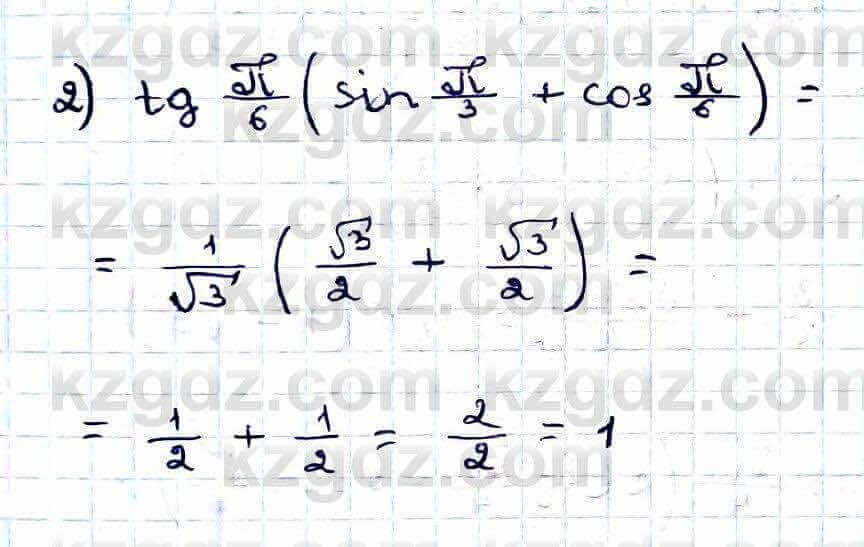 2) tg π/6 ( sin π/3 + cos π/6 ) =
= 1/√3 ( √3/2 + √3/2 ) =
= 1/2 + 1/2 = 2/2 = 1
kzgdz.com kzgdz.com
kzgdz.com
kzgdz.com kzgdz.com
kzgdz.com
kzgdz.com kzgdz.com
kzgdz.com